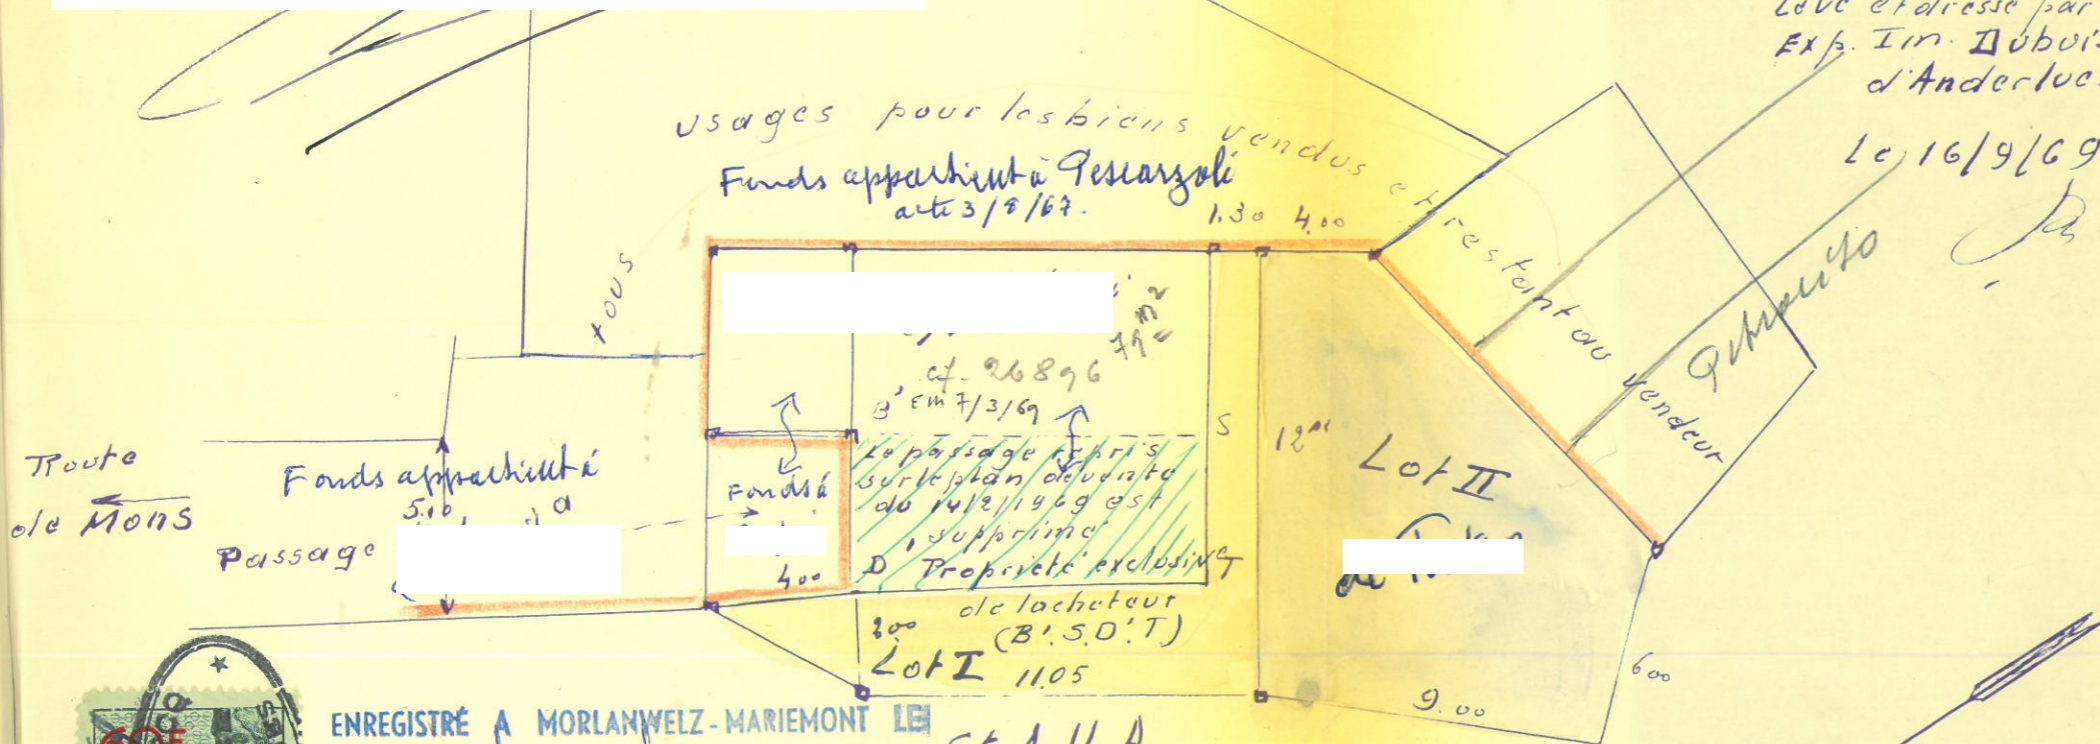 Levé et dressé par
Exp. Im. Dubois
d'Anderlues
Le 16/9/69
usages pour les biens vendus et restant au vendeur
Fonds appartient à Pescarzoli
acte 3/8/67.
1.30 4.00
tous
79 m²
cf. 26896
B' Em 7/3/69
S
12m
Lot II
Route
de Mons
Fonds appartient à
5.10
a
Passage
Fonds à
4.00
Le passage repris
sur le plan de vente
du 14/2/1969 est
supprimé
D' Propriété exclusive T
de lacheteur
(B'.S.D'.T)
2.00
Lot I 11.05
6.00
9.00
ENREGISTRÉ A MORLANWELZ-MARIEMONT LE